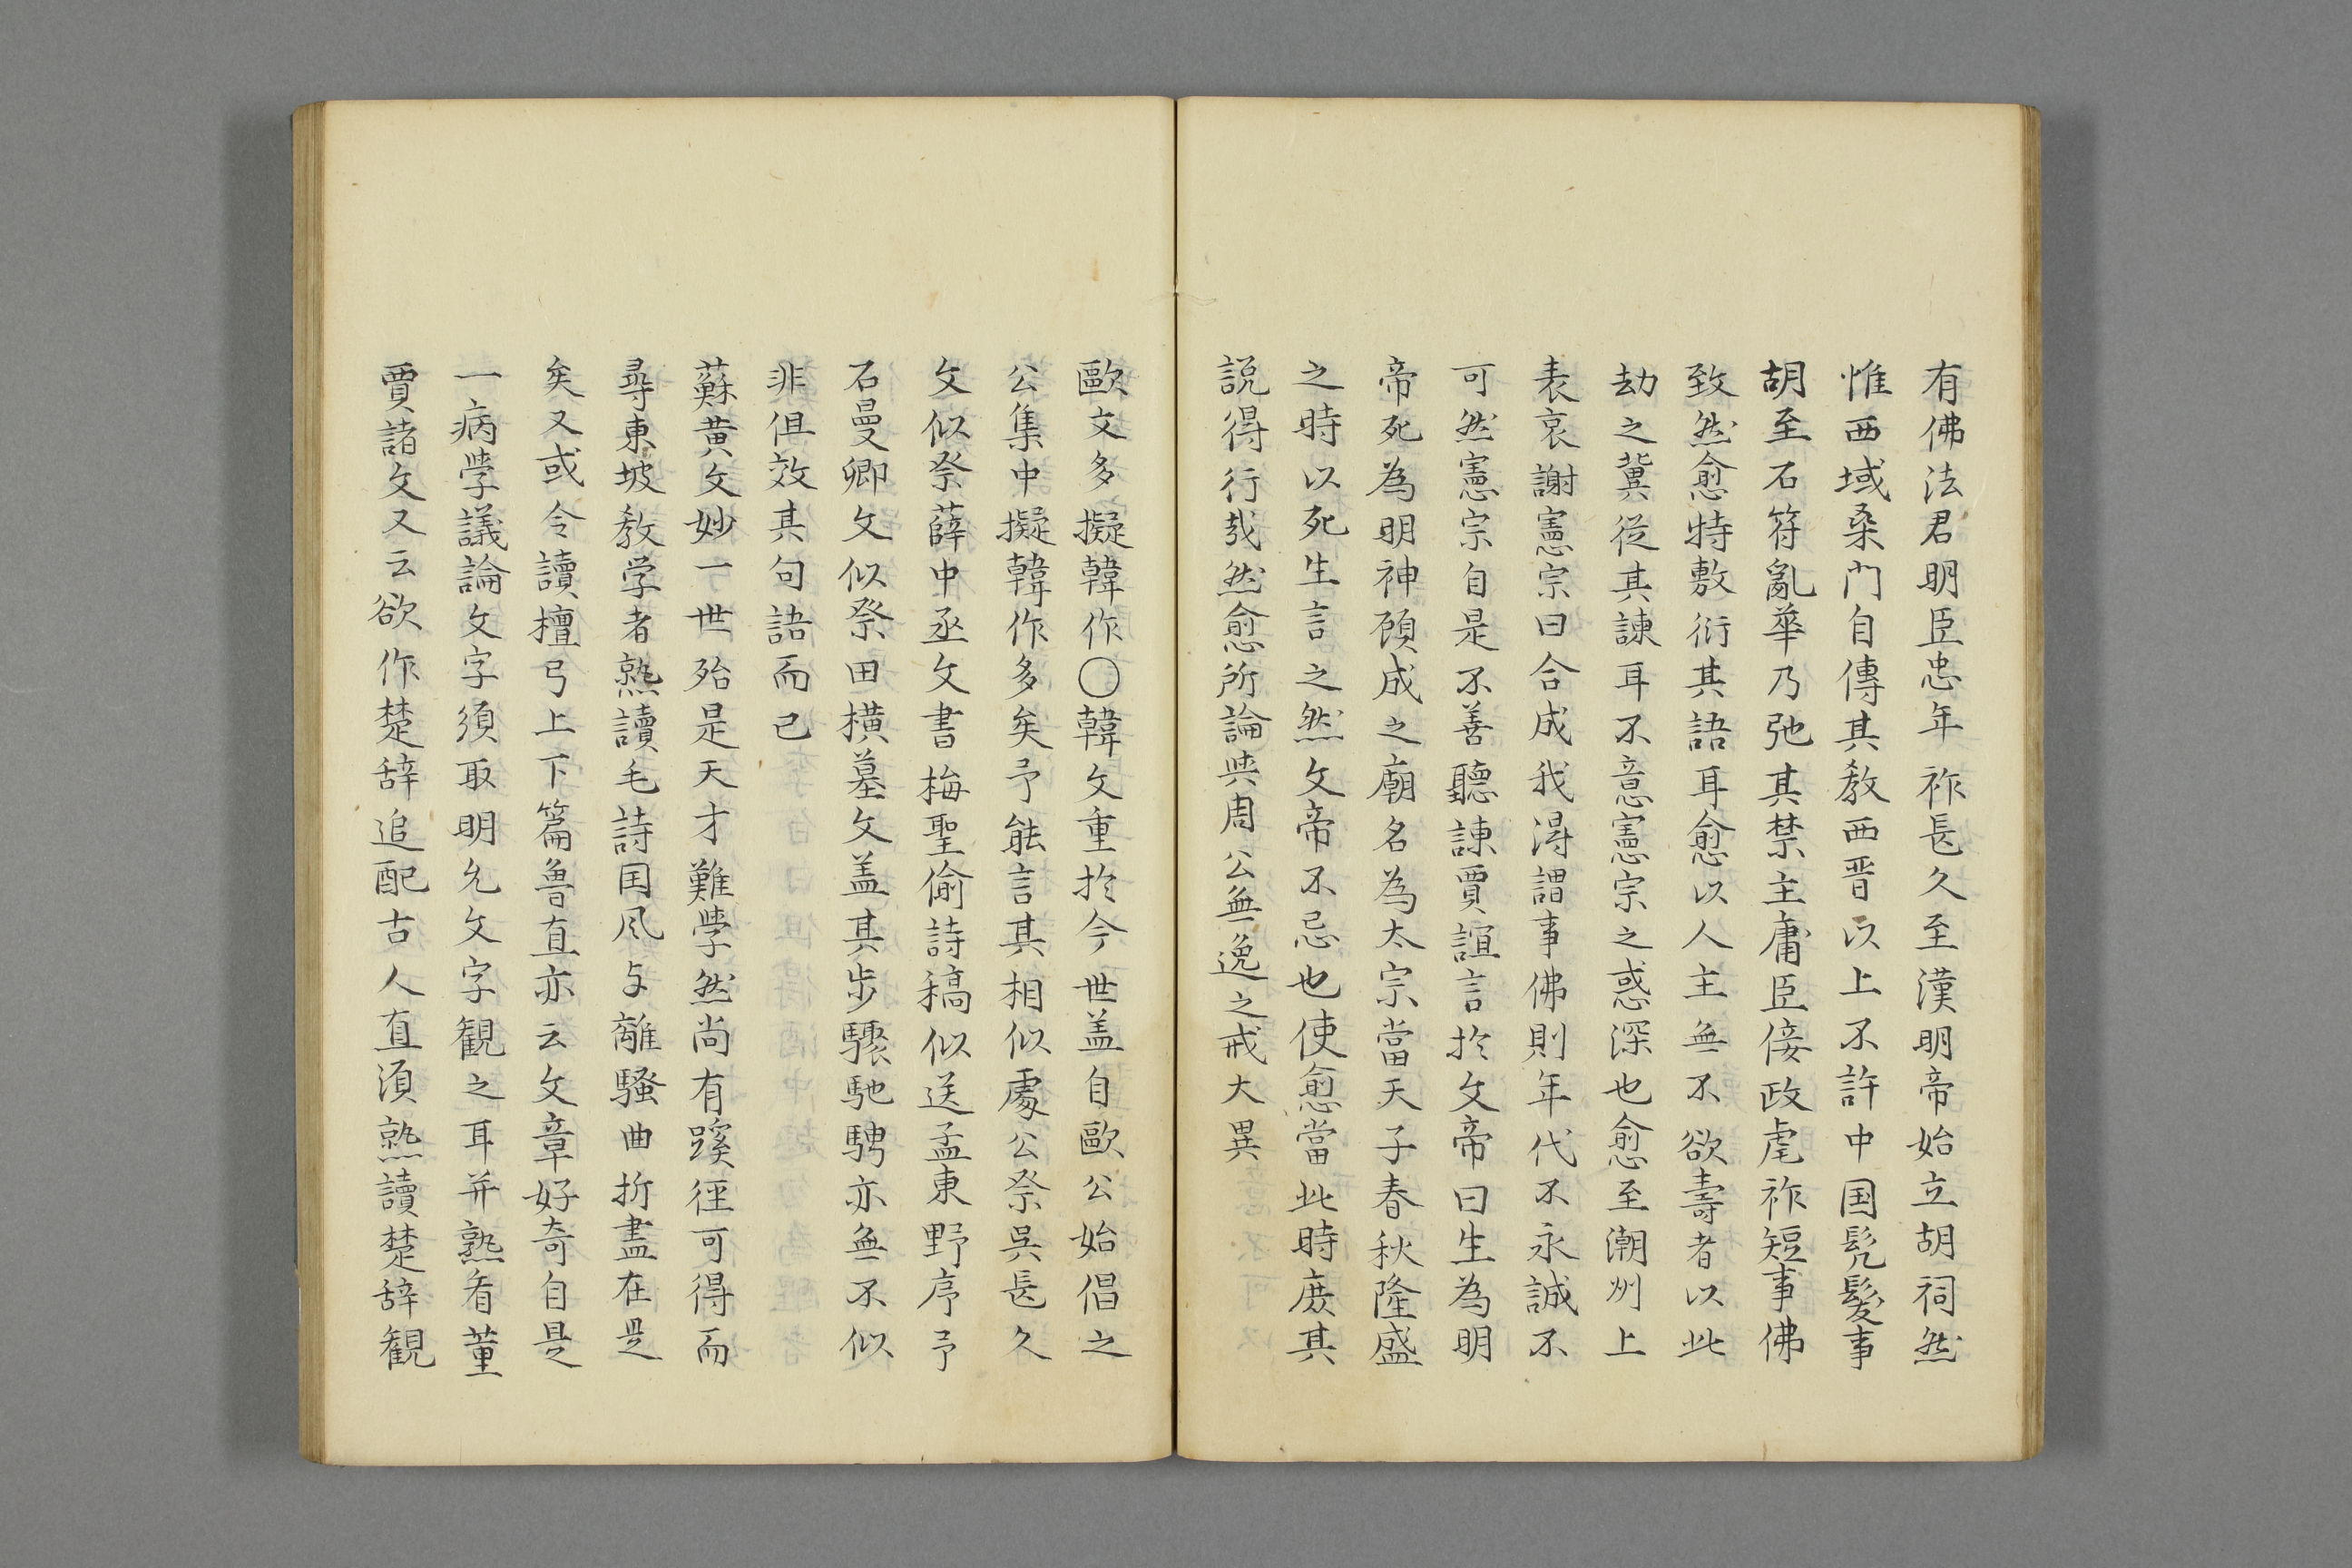 有佛法君明臣忠年祚長久至漢明帝始立胡祠然
惟西域桒門自傳其教西晋以上不許中国髡髮事
胡至石符亂華乃弛其禁主庸臣侫政虐祚短事佛
致然愈特敷衍其語耳愈以人主無不欲壽者以此
劫之冀從其諌耳不意憲宗之惑深也愈至潮州上
表哀謝憲宗曰合成我淂謂事佛則年代不永誠不
可然憲宗自是不善聽諌賈誼言扵文帝曰生為明
帝死為明神頋成之廟名為太宗當天子春秋隆盛
之時以死生言之然文帝不忌也使愈當此時庻其
説得行㦲然愈所論與周公無逸之戒大異
歐文多擬韓作〇韓文重扵今世盖自歐公始倡之
公集中擬韓作多矣予能言其相似處公祭吳長久
文似祭薛中丞文書梅聖俞詩稿似送孟東野序予
石曼卿文似祭田横墓文盖其步驟馳騁亦無不似
非但效其句語而已
蘇黄文妙一世殆是天才難學然尚有蹊徑可得而
尋東坡教学者熟讀毛詩国風与離騷曲折盡在是
矣又或令讀檀弓上下篇魯直亦云文章好奇自是
一病學議論文字須取明允文字観之耳并熟看董
賈諸文又云欲作楚辞追配古人直須熟讀楚辞観